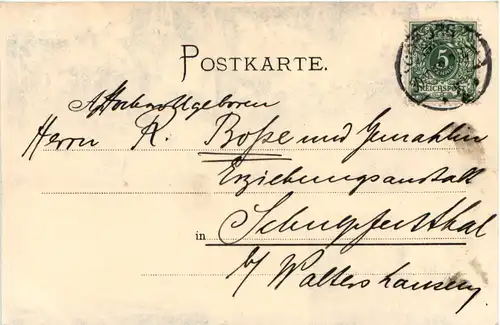 POSTKARTE.
5
REICHSPOST
Hochwollgeboren
Herrn R. Boße und Gemahlin
Erziehungsanstalt
in Schnepfenthal
b/ Waltershausen